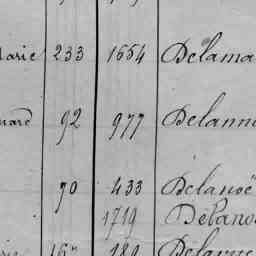 Marie 233 1654 Delama
nard 92 977 Delann
70 433 Delanoë
1719 Delano